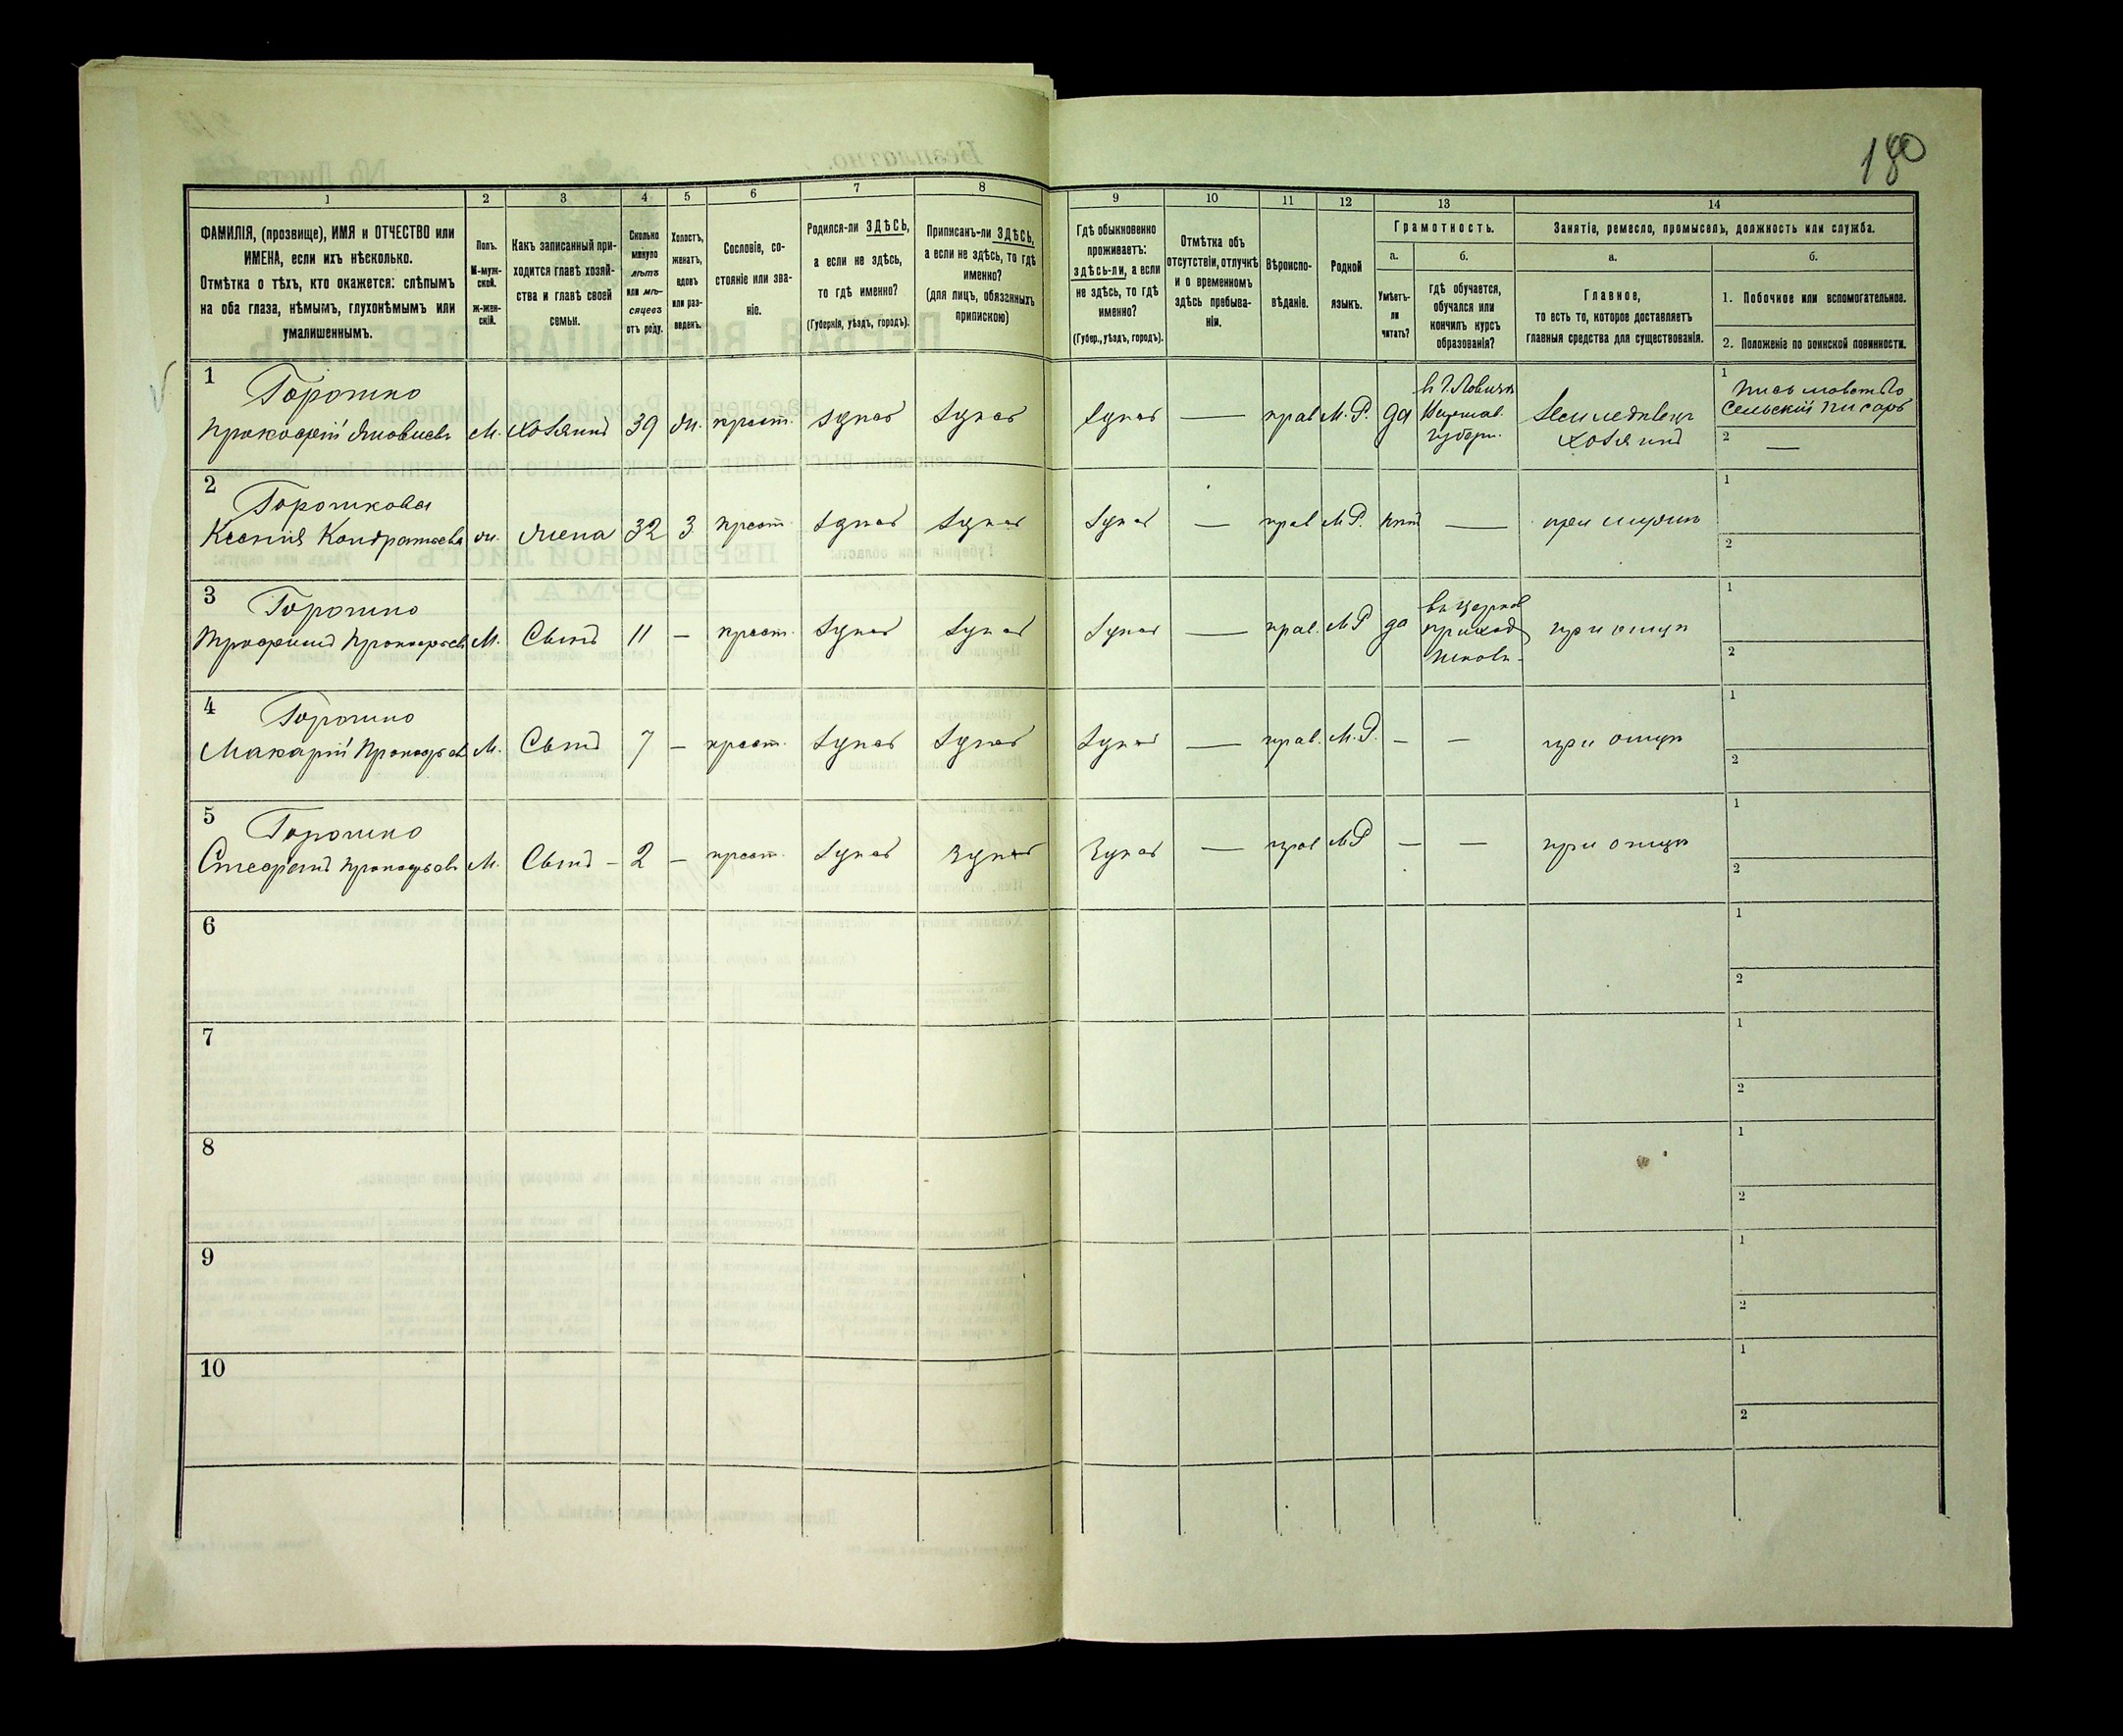 180
1
2
3
4
5
6
7
8
9
10
11
12
13
14
ФАМИЛІЯ, (прозвище), ИМЯ и ОТЧЕСТВО или
ИМЕНА, если ихъ нѣсколько.
Отмѣтка о тѣхъ, кто окажется: слѣпымъ
на оба глаза, нѣмымъ, глухонѣмымъ или
умалишеннымъ.
Полъ.
М-муж-
ской.
ж-жен-
скій.
Какъ записанный при-
ходится главѣ хозяй-
ства и главѣ своей
семьи.
Сколько
минуло
лѣтъ
или мѣ-
сяцевъ
отъ роду.
Холостъ,
женатъ,
вдовъ
или раз-
веденъ.
Сословіе, со-
стояніе или зва-
ніе.
Родился-ли ЗДѢСЬ,
а если не здѣсь,
то гдѣ именно?
(Губернія, уѣздъ, городъ).
Приписанъ-ли ЗДѢСЬ,
а если не здѣсь, то гдѣ
именно?
(для лицъ, обязанныхъ
припискою)
Гдѣ обыкновенно
проживаетъ:
здѣсь-ли, а если
не здѣсь, то гдѣ
именно?
(Губер., уѣздъ, городъ).
Отмѣтка объ
отсутствіи, отлучкѣ
и о временномъ
здѣсь пребыва-
ніи.
Вѣроиспо-
вѣданіе.
Родной
языкъ.
Грамотность.
а.
Умѣетъ-
ли
читать?
б.
гдѣ обучается,
обучался или
кончилъ курсъ
образованія?
Занятіе, ремесло, промыселъ, должность или служба.
а.
Главное,
то есть то, которое доставляетъ
главныя средства для существованія.
б.
1. Побочное или вспомогательное.
2. Положеніе по воинской повинности.
1 Горошко
Прокофій М. Хозяинъ 39 ж. крест. здѣсь здѣсь здѣсь — прав. М.Р. да Земледѣлецъ хозяинъ
1 Сельскій писарь
2 —
2 Горошкова
Ксенія Кондратьева ж. жена 32 З. крест. здѣсь здѣсь здѣсь — прав М.Р. нѣт — при мужѣ
1
2
3 Горошко
Трофимъ Прокофьевъ М. Сынъ 11 — крест. здѣсь здѣсь здѣсь — прав. М.Р да въ церков приход школѣ при отцѣ
1
2
4 Горошко
Макарій Прокофьев М. Сынъ 7 — крест. здѣсь здѣсь здѣсь — прав. М.Р. — — при отцѣ
1
2
5 Горошко
Стефанъ Прокофьевъ М. Сынъ — 2 — крест. здѣсь здѣсь здѣсь — прав М.Р — — при отцѣ
1
2
6
1
2
7
1
2
8
1
2
9
1
2
10
1
2